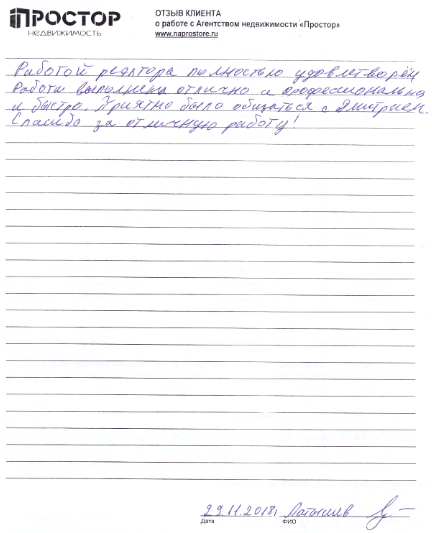 ПРОСТОР
НЕДВИЖИМОСТЬ
ОТЗЫВ КЛИЕНТА
о работе с Агентством недвижимости «Простор»
www.naprostore.ru
Работой реалтора полностью удовлетворён
Работа выполнена отлично и профессионально
и быстро. Приятно было общаться с Дмитрием.
Спасибо за отличную работу!
29.11.2018г
Дата
ФИО